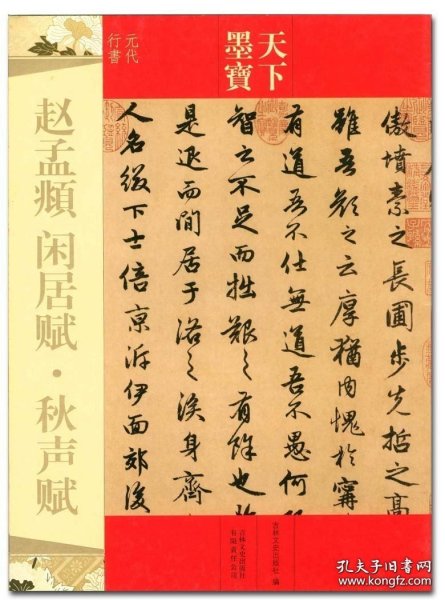 天下
墨寶
元代
行書
赵孟頫 闲居赋·秋声赋
傲墳素之長圃步先哲之高
雖吾顏之云厚猶內愧於甯
有道吾不仕無道吾不愚何
智之不足而拙艱之有餘也
是退而閒居于洛之涘身齊
人名綴下士倍京泝伊面郊後
吉林文史出版社 编
吉林文史出版社
有限责任公司
孔夫子旧书网
www.kongfz.com